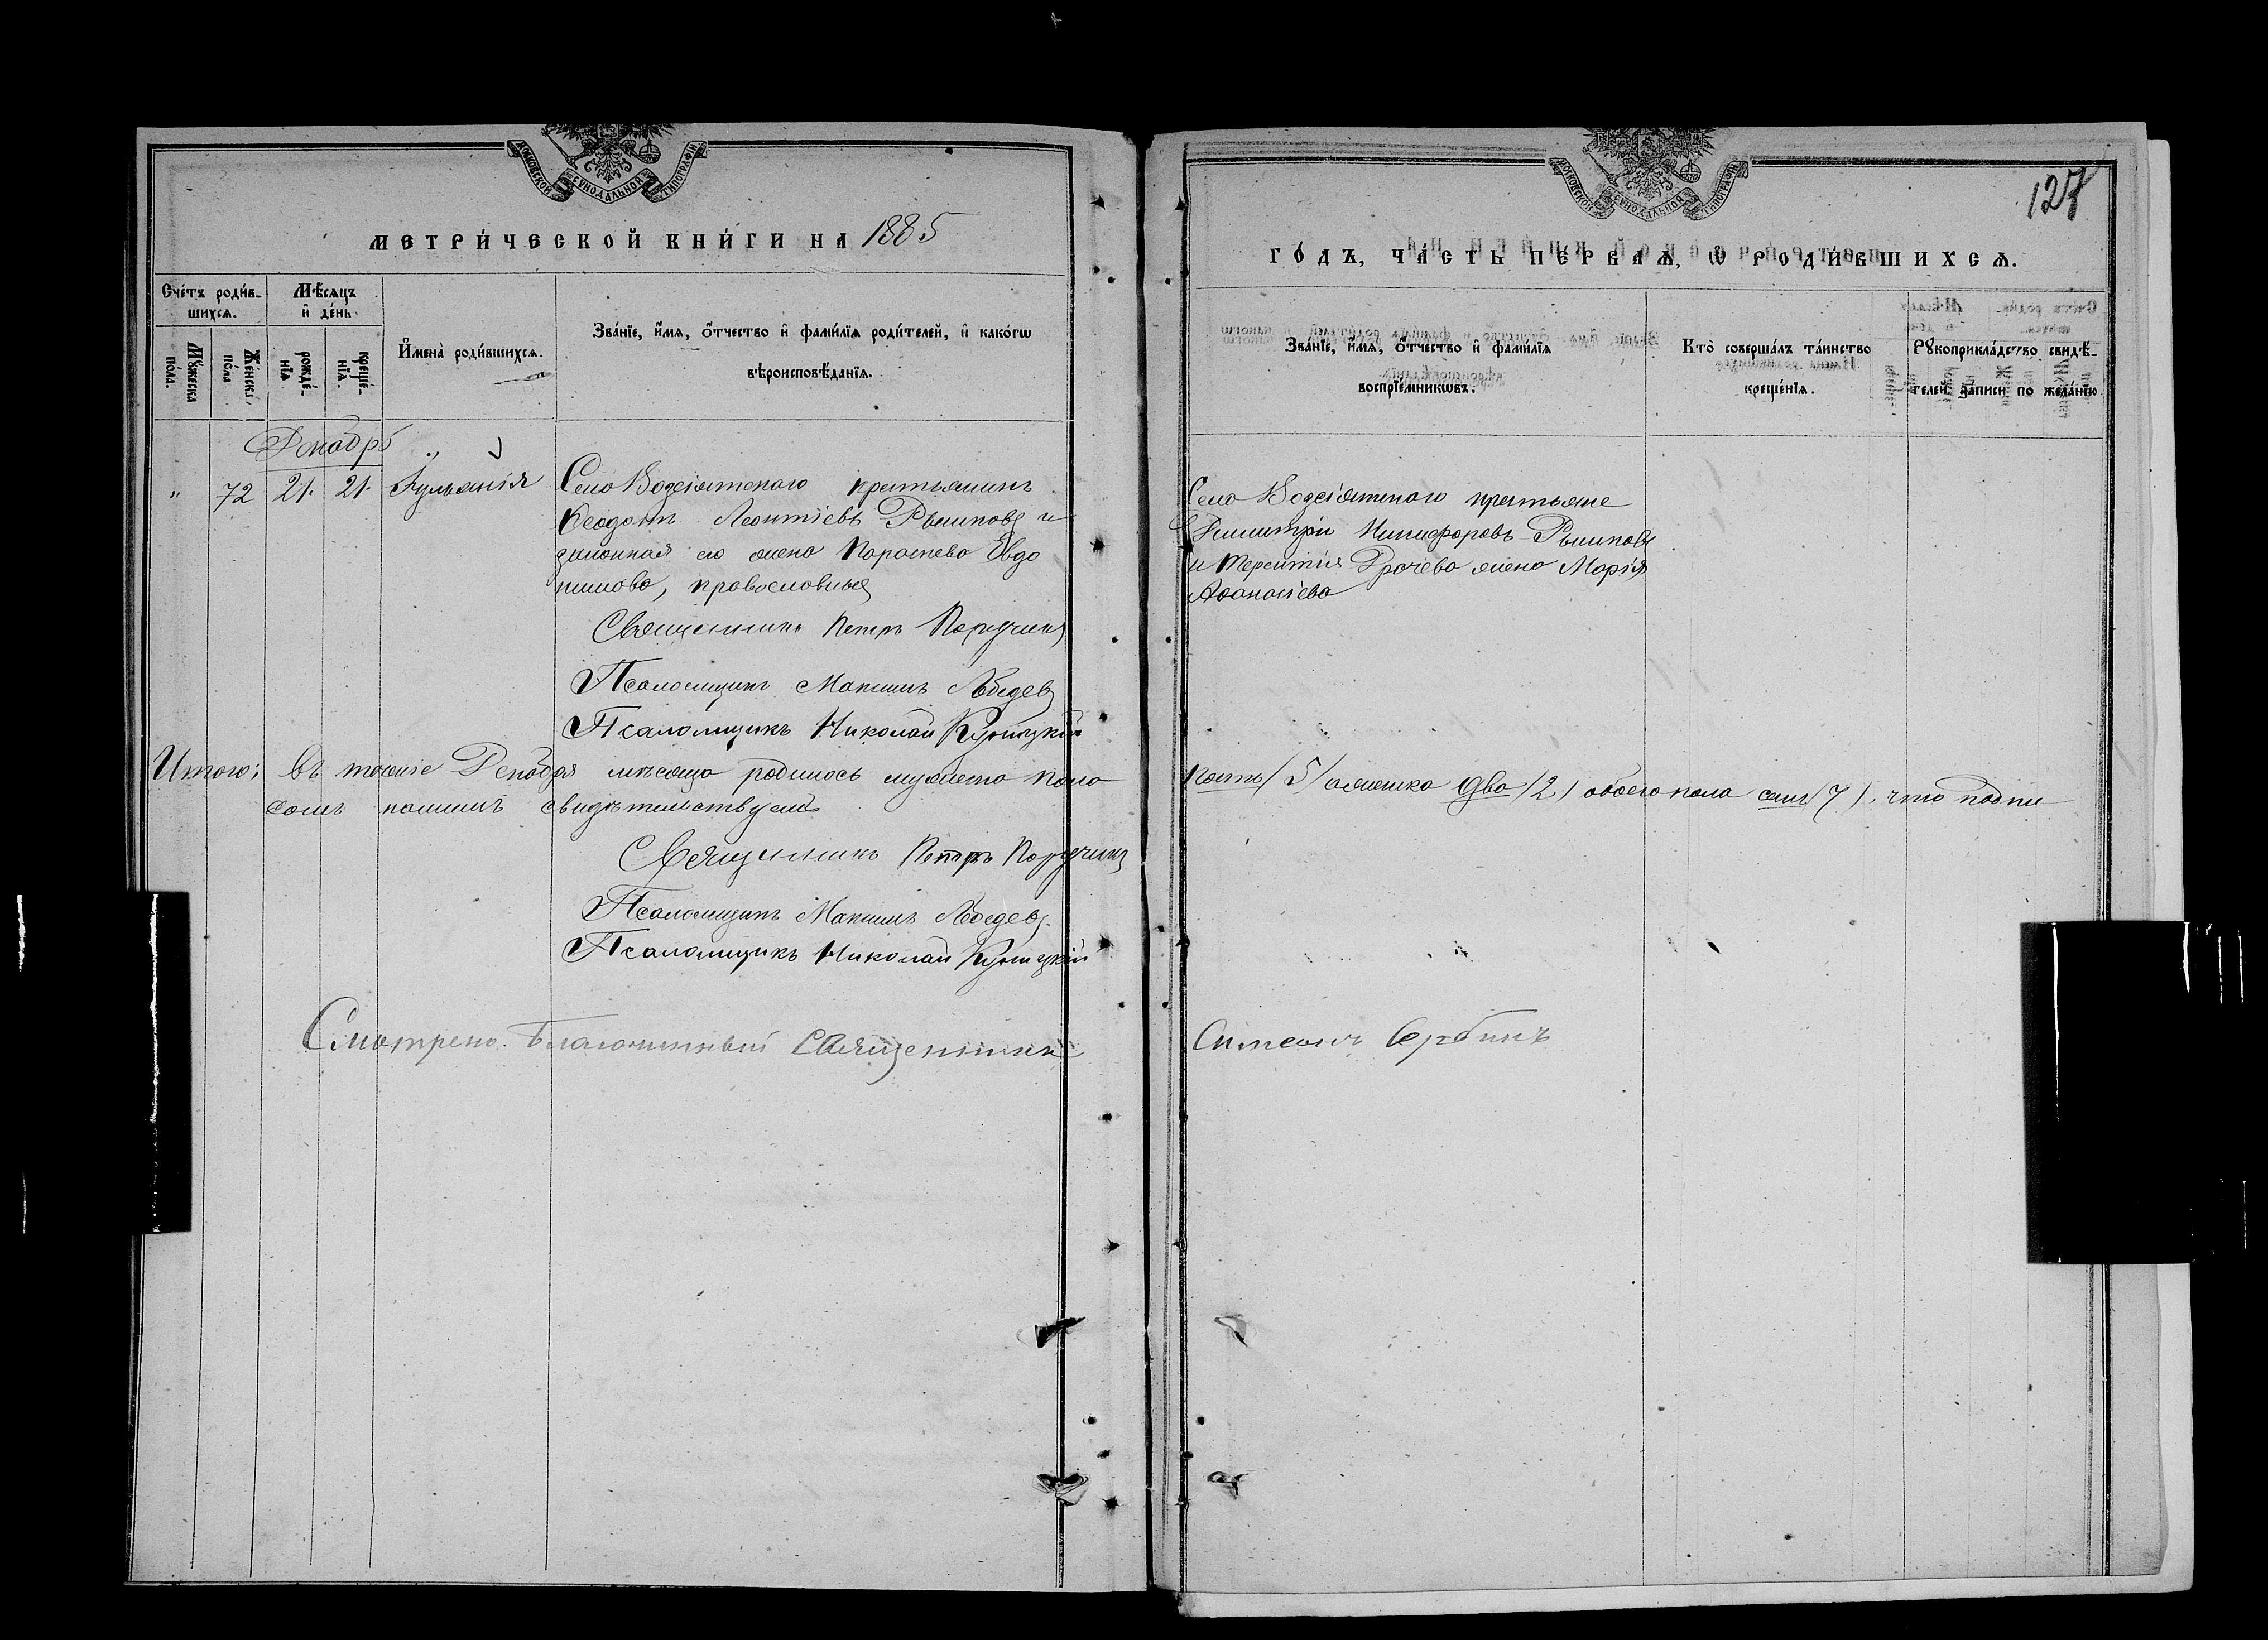 МОСКОВСКОЙ СѴНОДАЛЬНОЙ ТИПОГРАФІИ
МЕТРИ́ЧЕСКОЙ КНИ́ГИ НА 1885
Сче́тъ роди́в-
шихсѧ.
Мѣ́сѧцъ
и҆ де́нь
Мꙋ́жеска
по́ла.
Же́нска
по́ла
рожде́-
нїѧ
креще́-
нїѧ.
И҆мена̀ роди́вшихсѧ.
Зва́нїе, и҆́мѧ, ѻ҆́тчество и҆ фами́лїѧ роди́телей, и҆ како́гѡ
вѣроисповѣ́данїѧ.
Декабрь
" 72 21. 21. Іульянія
Села Водсіятского крестьянинъ
Ксефонт Леонтіевъ Рышковъ и
законная его жена Параскева Евдо
кимова, православныя
Священникъ Петръ Поручикъ
Псаломщикъ Максимъ Лебедевъ
Псаломщикъ Николай
Итого: въ теченіе Декабря мѣсяца родилось мужеска пола
самъ нашимъ свидѣтельствуемъ
Священникъ Петръ Поручикъ
Псаломщикъ Максимъ Лебедевъ
Псаломщикъ Николай
Смотрено. Благочинный Священникъ
МОСКОВСКОЙ СѴНОДАЛЬНОЙ ТИПОГРАФІИ
127
ГО́ДЪ, ЧА́СТЬ ПЕ́РВАѦ, Ѡ РОДИ́ВШИХСѦ.
Зва́нїе, и҆́мѧ, ѻ҆́тчество и҆ фами́лїѧ
воспрїе́мникѡвъ.
Кто̀ соверша́лъ та́инство
креще́нїѧ.
Рꙋкоприкла́дство свидѣ́-
телей за́писи по жела́нїю
Села Водсіятского крестьяне
Димитрій Никифоровъ Рышковъ
и Терентія Грачева жена Марія
Аѳанасіева
пять (5) а женска два (2) обоего пола семь (7). что подпи
Симеонъ Сербинъ